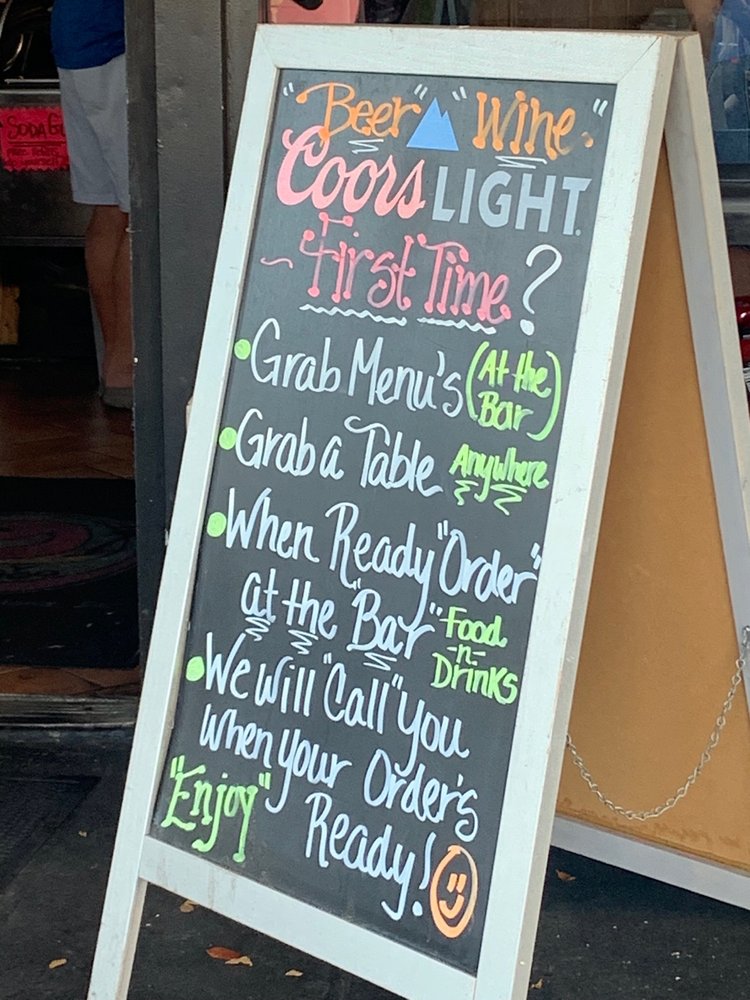 "Beer" "Wine"
Coors LIGHT
~ First Time?
• Grab Menu's (At the Bar)
• Grab a Table Anywhere
• When Ready "Order"
at the "Bar" Food -n- Drinks
• We will "Call" you
when your Order's
"Enjoy" Ready!
SODA